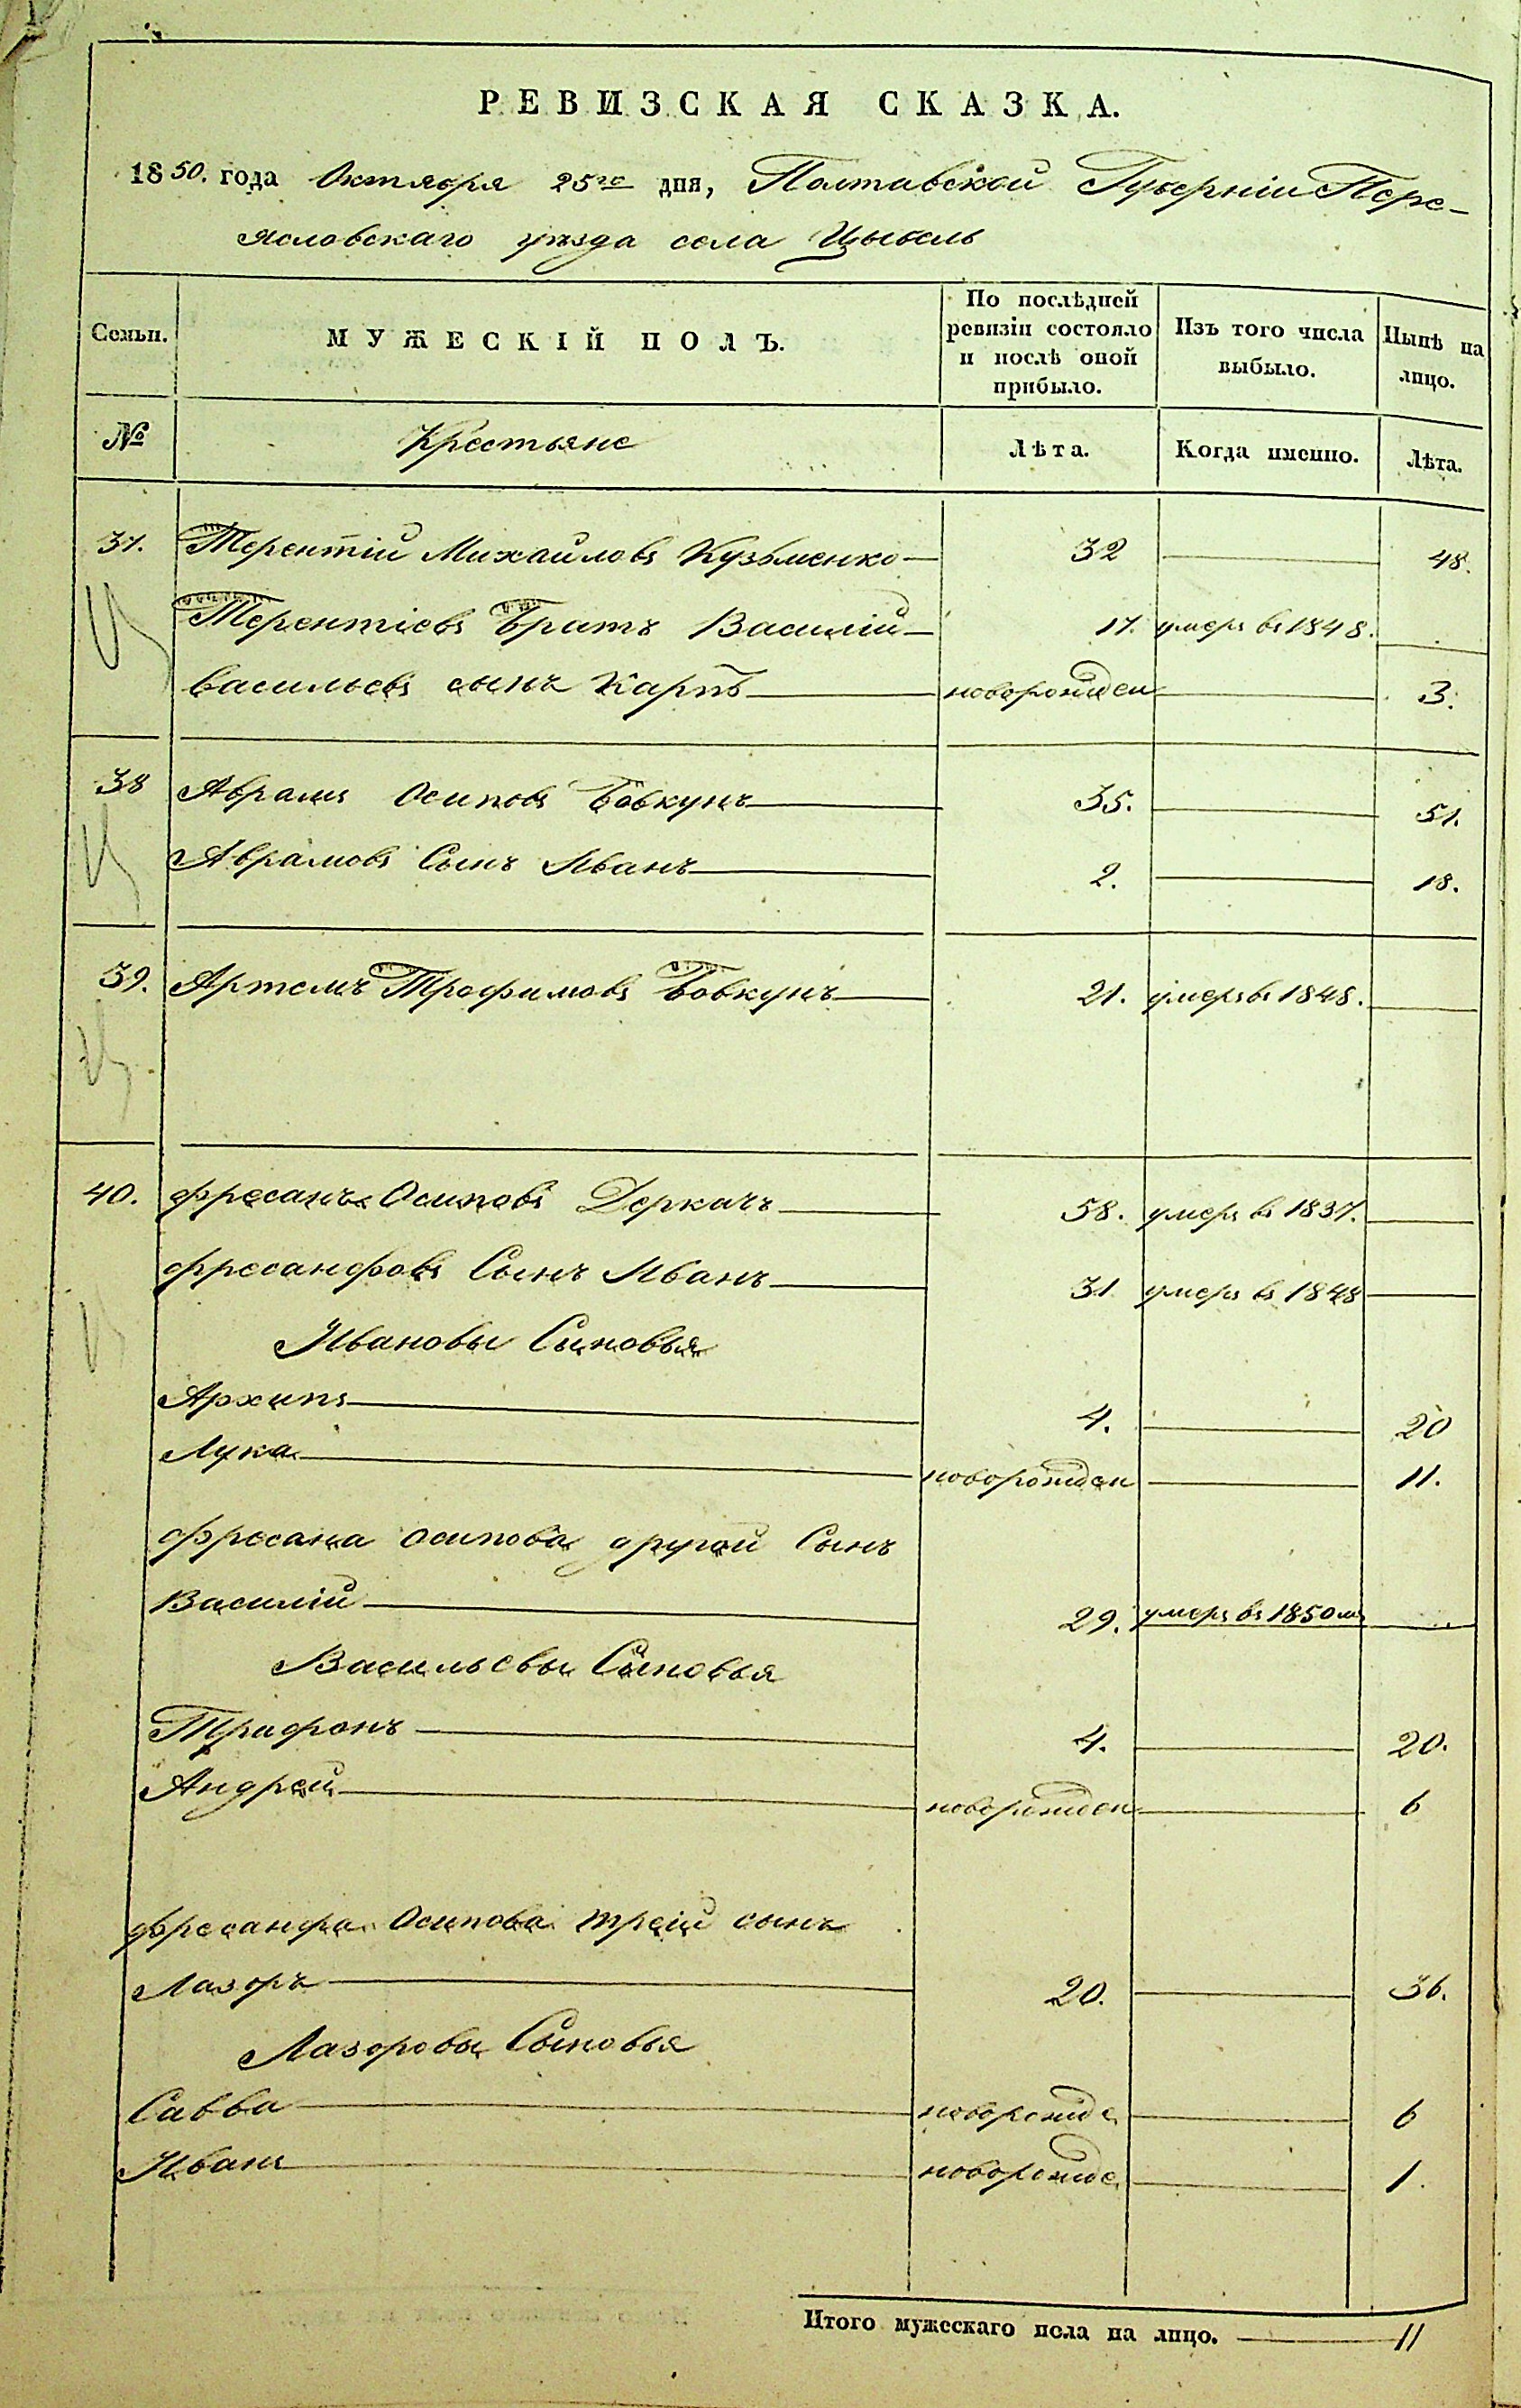 РЕВИЗСКАЯ СКАЗКА.
1850. года Октября 25го дня, Полтавской Губерніи Пере-
яславскаго уѣзда села Цыбель
Семьи. МУЖЕСКІЙ ПОЛЪ. По послѣдней ревизіи состояло и послѣ оной прибыло. Изъ того числа выбыло. Нынѣ на лицо.
№ Крестьяне Лѣта. Когда именно. Лѣта.
37. Терентій Михайловъ Кузьменко 32 48.
Терентіевъ братъ Василій 17. умеръ въ 1848.
Васильевъ сынъ Карпъ новорожден 3.
38 Аврамъ Осиповъ Бовкунъ 35. 51.
Аврамовъ Сынъ Иванъ 2. 18.
39. Артемъ Трофимовъ Бовкунъ 21. умеръ въ 1848.
40. Фресанъ Осиповъ Деркачъ 58. умеръ въ 1837.
Фресанфовъ Сынъ Иванъ 31 умеръ въ 1848
Ивановы Сыновья
Архипъ 4. 20
Лука новорожден 11.
Фресана Осипова другой Сынъ
Василій 29. умеръ въ 1850мъ
Васильевы Сыновья
Трифонъ 4. 20.
Андрей новорожден 6
Фресанфа Осипова треій сынъ
Лазоръ 20. 36.
Лазоровы Сыновья
Савва новорожде 6
Иванъ новорожде 1.
Итого мужескаго пола на лицо. 11